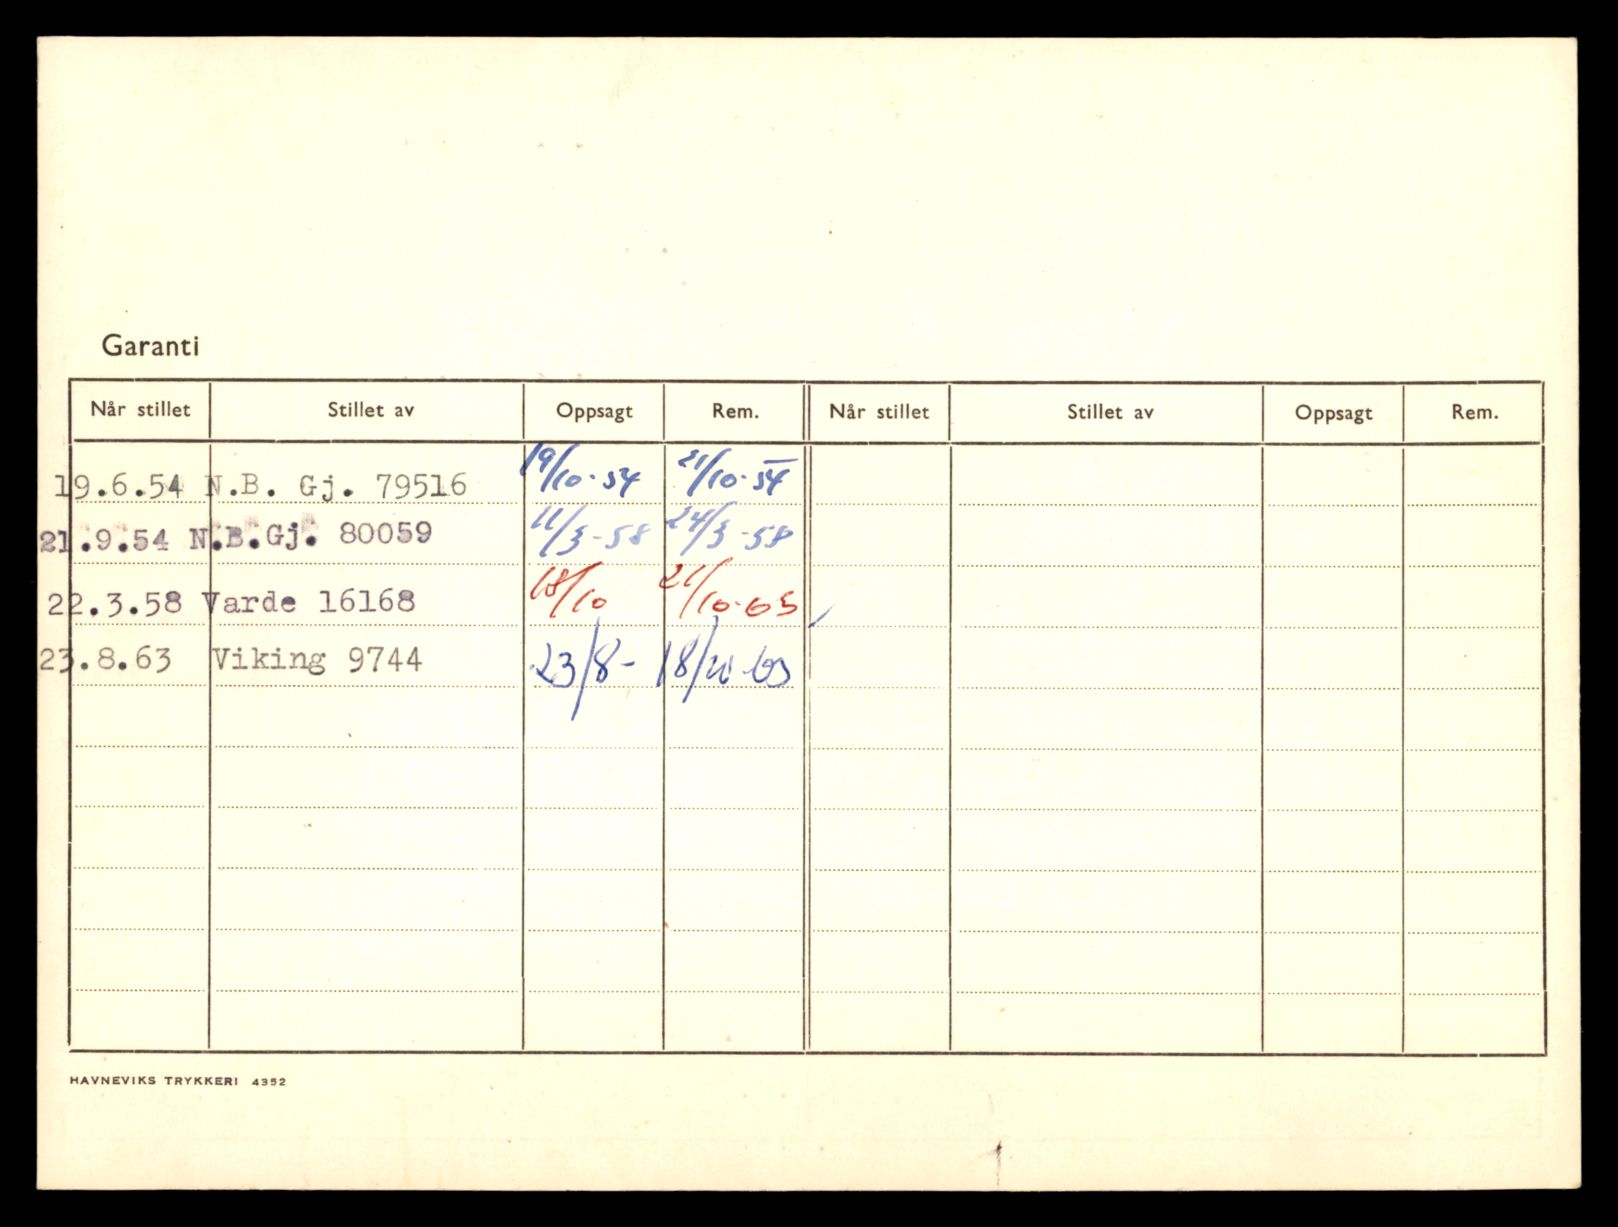 Garanti
Når stillet Stillet av Oppsagt Rem. Når stillet Stillet av Oppsagt Rem.
19.6.54 N.B. Gj. 79516 19/10-54 21/10-54
21.9.54 N.B.Gj. 80059 11/3-58 24/3-58
22.3.58 Varde 16168 18/10 21/10-63
23.8.63 Viking 9744 23/8- 18/10-63
HAVNEVIKS TRYKKERI 4352